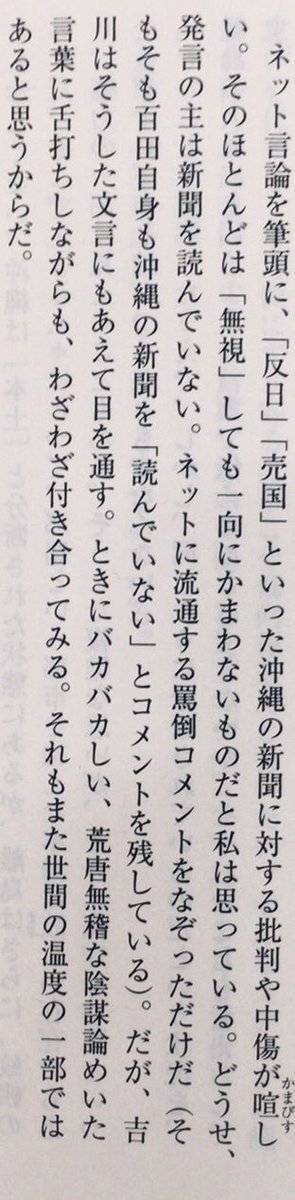 ネット言論を筆頭に、「反日」「売国」といった沖縄の新聞に対する批判や中傷が喧し
かまびす
い。そのほとんどは「無視」しても一向にかまわないものだと私は思っている。どうせ、
発言の主は新聞を読んでいない。ネットに流通する罵倒コメントをなぞっただけだ（そ
もそも百田自身も沖縄の新聞を「読んでいない」とコメントを残している）。だが、吉
川はそうした文言にもあえて目を通す。ときにバカバカしい、荒唐無稽な陰謀論めいた
言葉に舌打ちしながらも、わざわざ付き合ってみる。それもまた世間の温度の一部では
あると思うからだ。